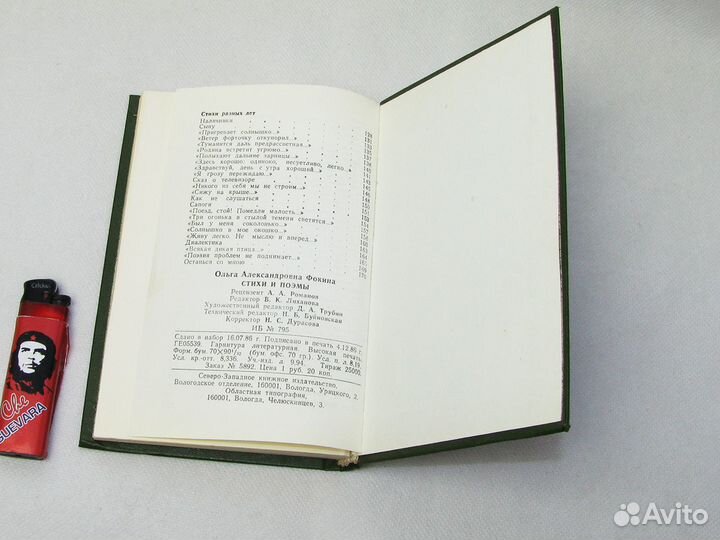 Стихи разных лет
Наличники
Сыну
«Пригревает солнышко...»
«Ветер форточку откупорил...»
«Туманится даль предрассветная...»
«Родина встретит угрюмо...»
«Полыхают дальние зарницы...»
«Здесь хорошо: одиноко, несуетливо, легко...»
«Здравствуй, день с утра хороший...»
«Я грозу пережидаю...»
Сказ о телевизоре
«Никого из себя мы не строим...»
«Сижу на крыше...»
Как не слушаться
Сапоги
«Поезд, стой! Помедли малость...»
«Три огонька в стылой темени светится...»
«Был у меня соколонько...»
«Солнышко в мое окошко...»
«Живу легко. Не мыслю и вперед...»
Диалектика
«Всякая дикая птица...»
«Поэзия проблем не поднимает...»
Останься со мною
Ольга Александровна Фокина
СТИХИ И ПОЭМЫ
Рецензент А. А. Романов
Редактор В. К. Лиханова
Художественный редактор Д. А. Трубин
Технический редактор Н. Б. Буйновская
Корректор Н. С. Дурасова
ИБ № 795
Сдано в набор 16.07.86 г. Подписано в печать 4.12.86 г.
ГЕ05539. Гарнитура литературная Высокая печать.
Форм. бум. 70×90¹/₃₂ (бум. офс. 70 гр.). Усл. п. л. 8,19.
Усл. кр.-отт. 8,336. Уч.-изд. л. 9,94. Тираж 25000.
Заказ № 5892. Цена 1 руб. 20 коп.
Северо-Западное книжное издательство,
Вологодское отделение, 160001, Вологда, Урицкого, 2.
Областная типография,
160001, Вологда, Челюскинцев, 3.
Che
GUEVARA
Avito